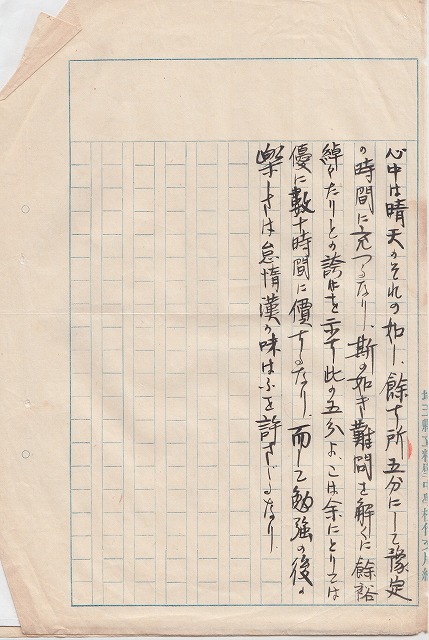 心中は晴天のそれの如し、餘す所五分にして豫定
の時間に充つるなり、斯の如き難問を解くに餘裕
綽々たりとの誇りを示す此の五分よ、こは余にとりては
優に數十時間に價するなり、而して勉強の後の
樂しさは怠惰漢の味はふを許さゞるなり